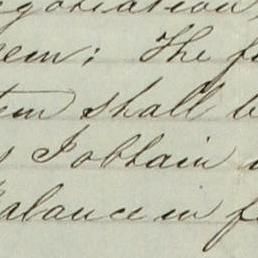 gotiation,
em; The f
tem shall b
s I obtain
alance in f